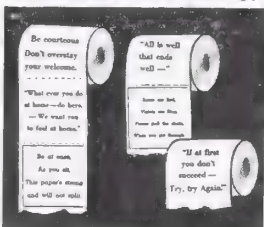 Be courteous
Don't overstay
your welcome.
"What ever you do
at home — do here,
— We want you
to feel at home."
Be at ease,
As you sit,
This paper's strong
and will not split.
"All is well
that ends
well —"
Roses are Red,
Violets are Blue,
Please pull the chain,
When you get through
"If at first
you don't
succeed —
Try, try Again."